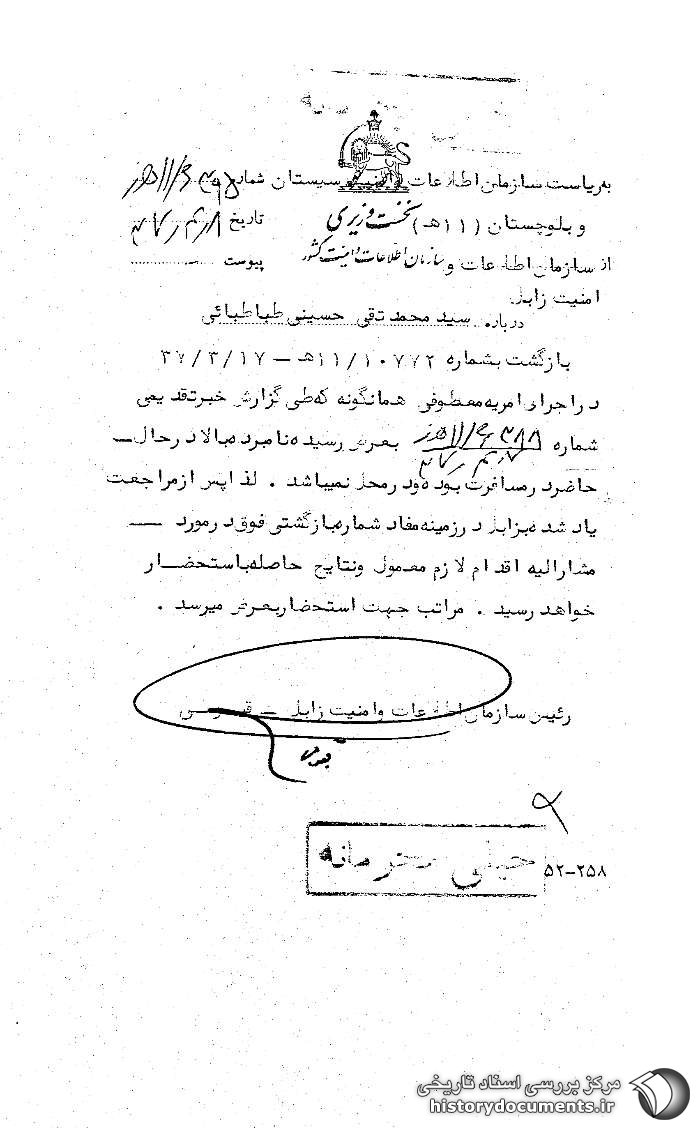 به ریاست سازمان اطلاعات و امنیت سیستان شماره
و بلوچستان (۱۱ه‍) نخست وزیری تاریخ
از سازمان اطلاعات و سازمان اطلاعات و امنیت کشور پیوست
امنیت زابل
درباره سید محمد تقی حسینی طباطبائی
بازگشت بشماره ۱۱/۱۰۷۷۲ه‍ – ۳۷/۳/۱۷
در اجرای امریه معطوفی همانگونه که طی گزارش خبر تقدیمی
شماره بعرض رسیده نامبرده بالا در حال
حاضر در مسافرت بوده و در محل نمیباشد . لذا پس از مراجعت
یاد شده بزابل در زمینه مفاد شماره بازگشتی فوق در مورد
مشارالیه اقدام لازم معمول و نتایج حاصله باستحضار
خواهد رسید . مراتب جهت استحضار بعرض میرسد .
رئیس سازمان اطلاعات و امنیت زابل –
خیلی محرمانه
۵۲-۲۵۸
مرکز بررسی اسناد تاریخی
historydocuments.ir